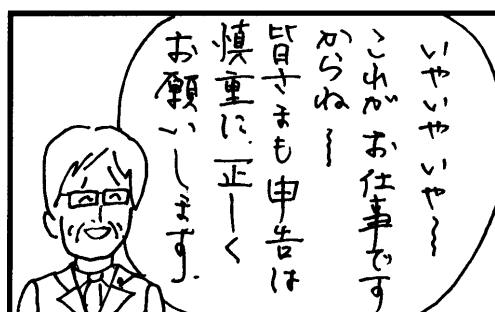 いやいやいや〜〜
これがお仕事です
からね〜
皆さまも申告は
慎重に、正しく
お願いします。